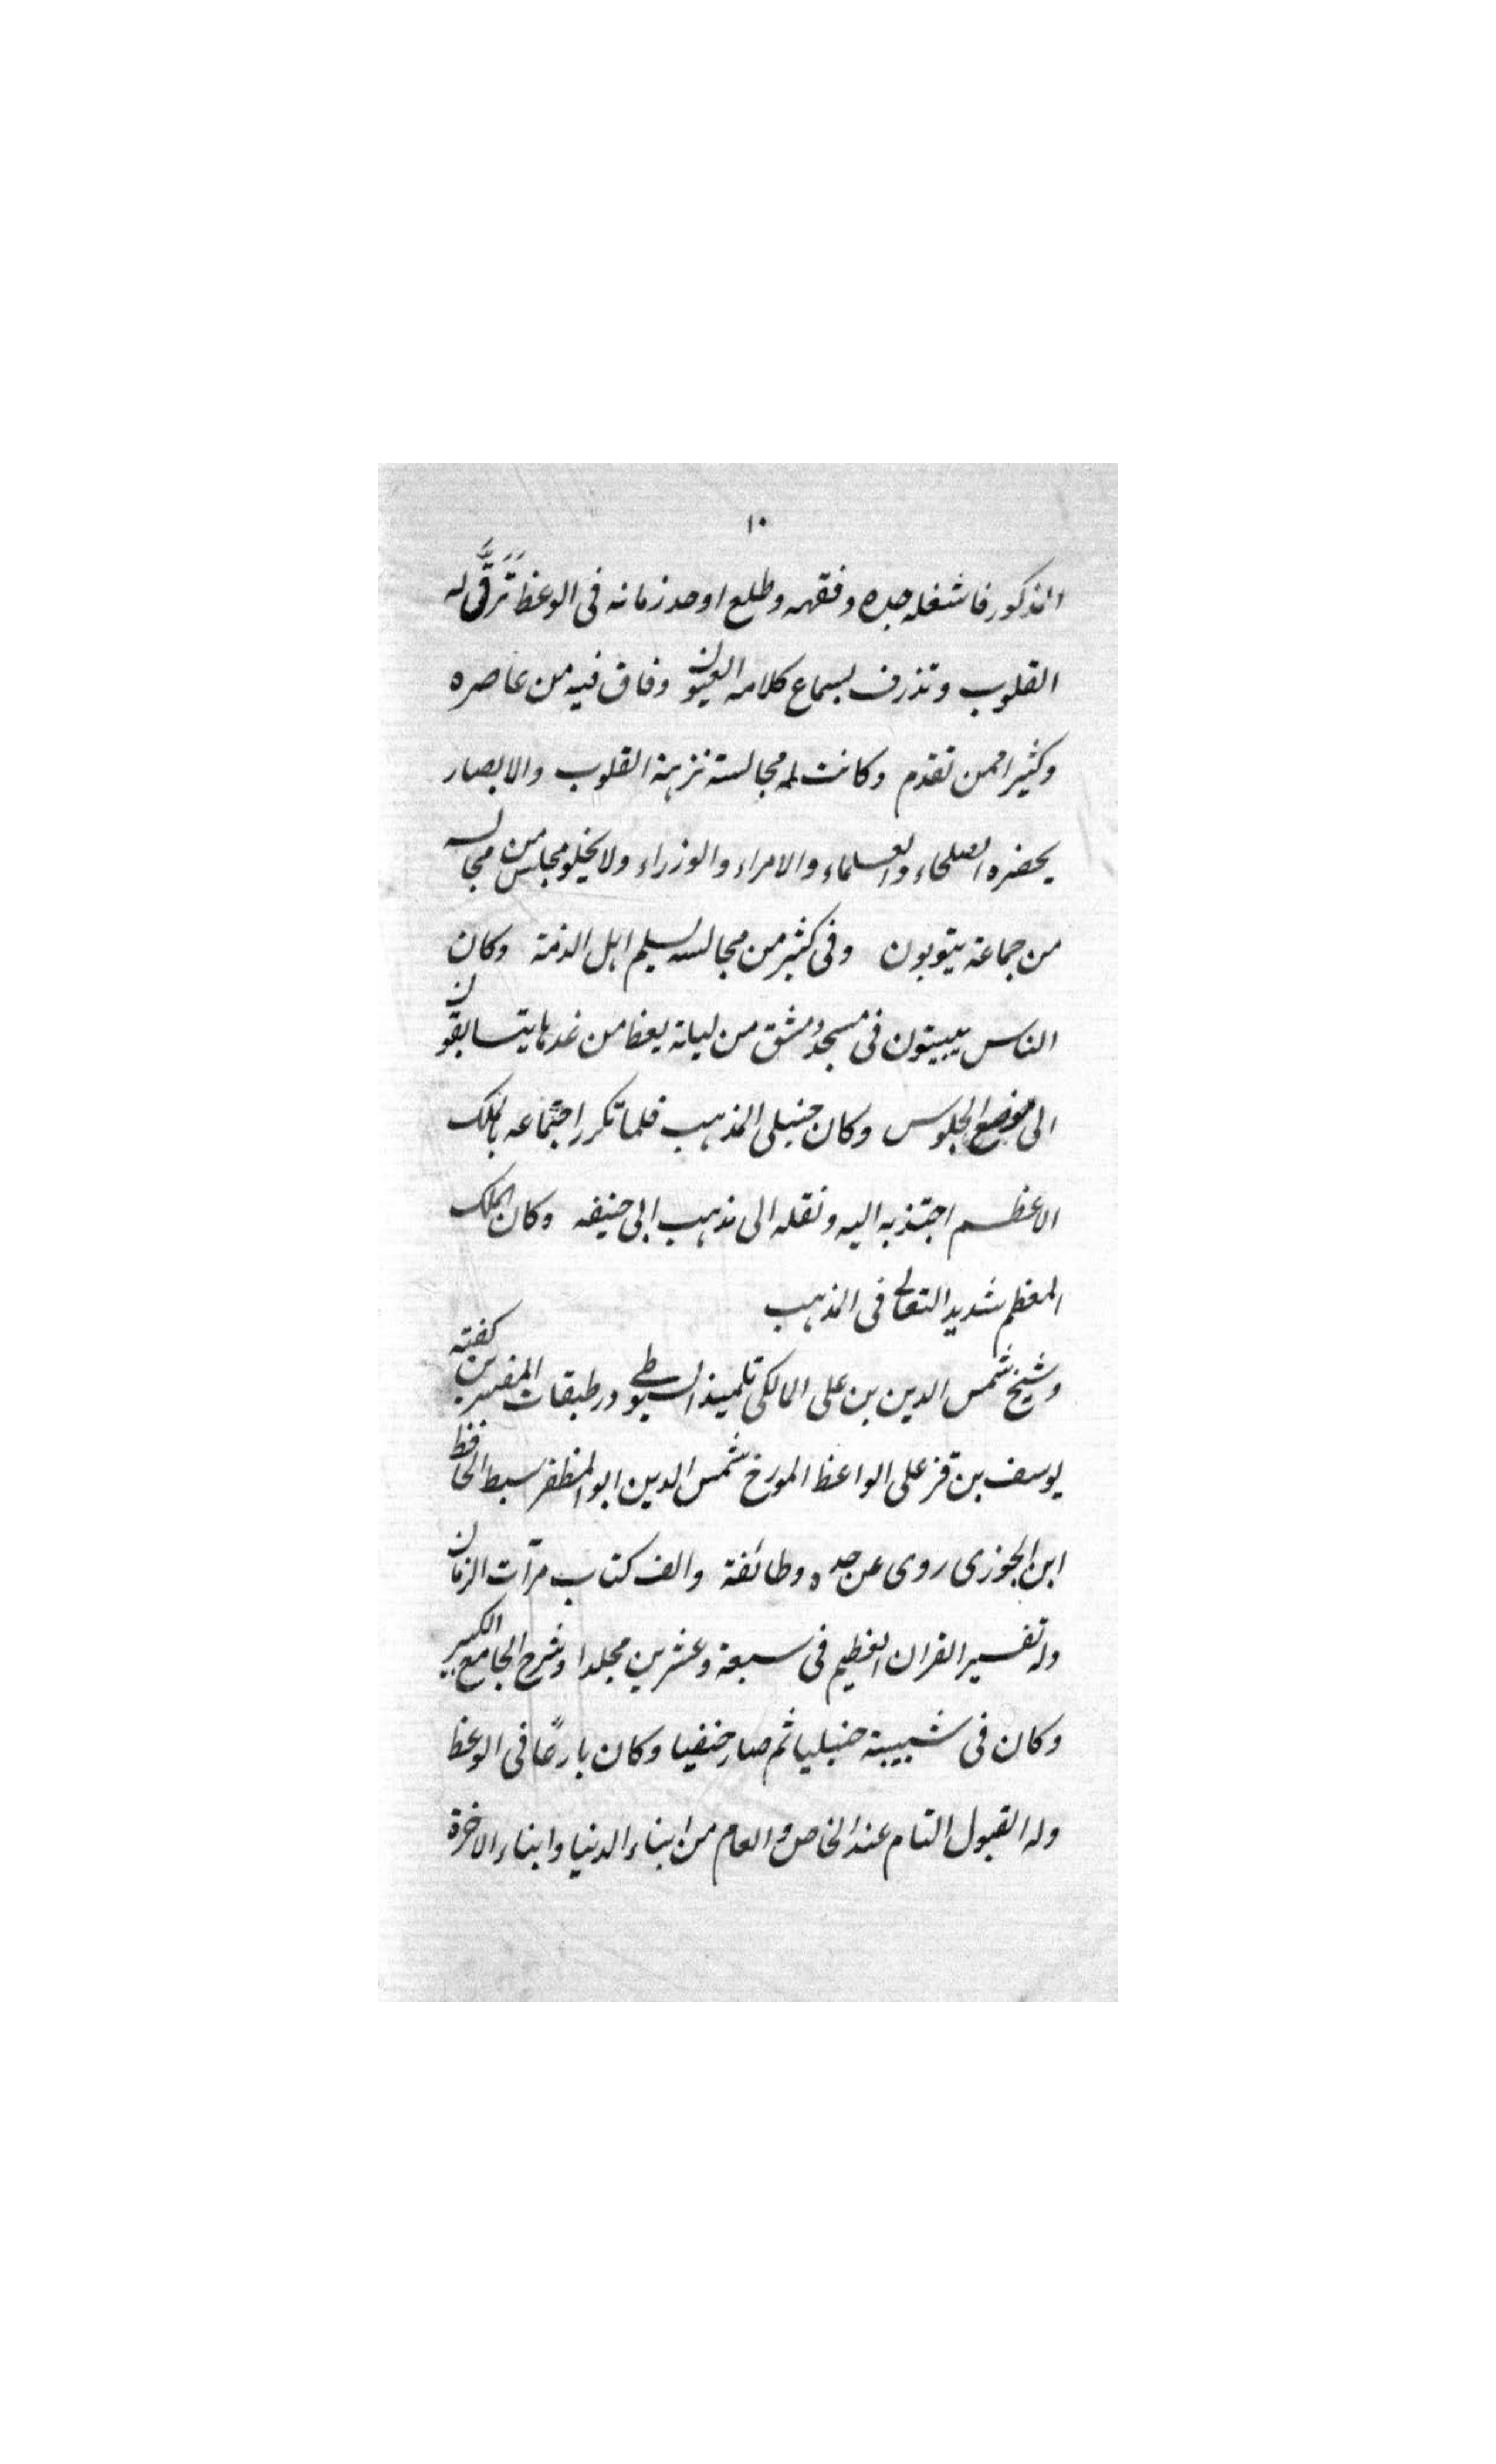 ۱۰
المذکور فاشغله جده وفقهه وطلع اوحد زمانه فی الوعظ تَرِقُّ له
القلوب وتذرف لسماع کلامه العیون وفاق فیه من عاصره
وکثیرا ممن تقدم وکانت له مجالسته نزهة القلوب والابصار
یحضره الصلحاء والعلماء والامراء والوزراء ولا یخلو مجلس من مجالسه
من جماعة یتوبون وفی کثیر من مجالسه یسلم اهل الذمة وکان
الناس یبیتون فی مسجد دمشق من لیلة یعظ من غدها یتسابقون
الی موضع الجلوس وکان حنبلی المذهب فلما تکرر اجتماعه بالملک
الاعظم اجتذبه الیه ونقله الی مذهب ابی حنیفه وکان الملک
المعظم شدید التعالی فی المذهب
وشیخ شمس الدین بن علی المالکی تلمیذ السیوطی در طبقات المفسرین کفته
یوسف بن قزعلی الواعظ المورخ شمس الدین ابو المظفر سبط الحافظ
ابن الجوزی روی عن جده وطائفة والف کتاب مرآت الزمان
وله تفسیر القران العظیم فی سبعة وعشرین مجلدا وشرح الجامع الکبیر
وکان فی شبیبته حنبلیا ثم صار حنفیا وکان بارعًا فی الوعظ
وله القبول التام عند الخاص والعام من ابناء الدنیا وابناء الاخرة